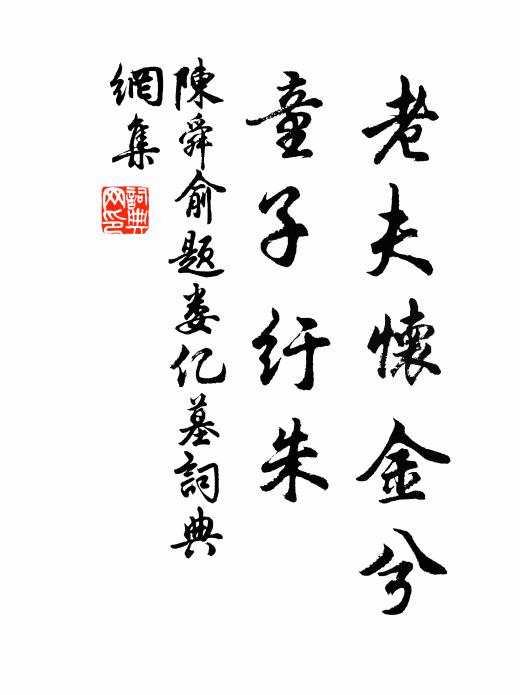 老夫懷金兮
童子紆朱
陳舜俞題婁亿墓詞典
網集
詞典
网印